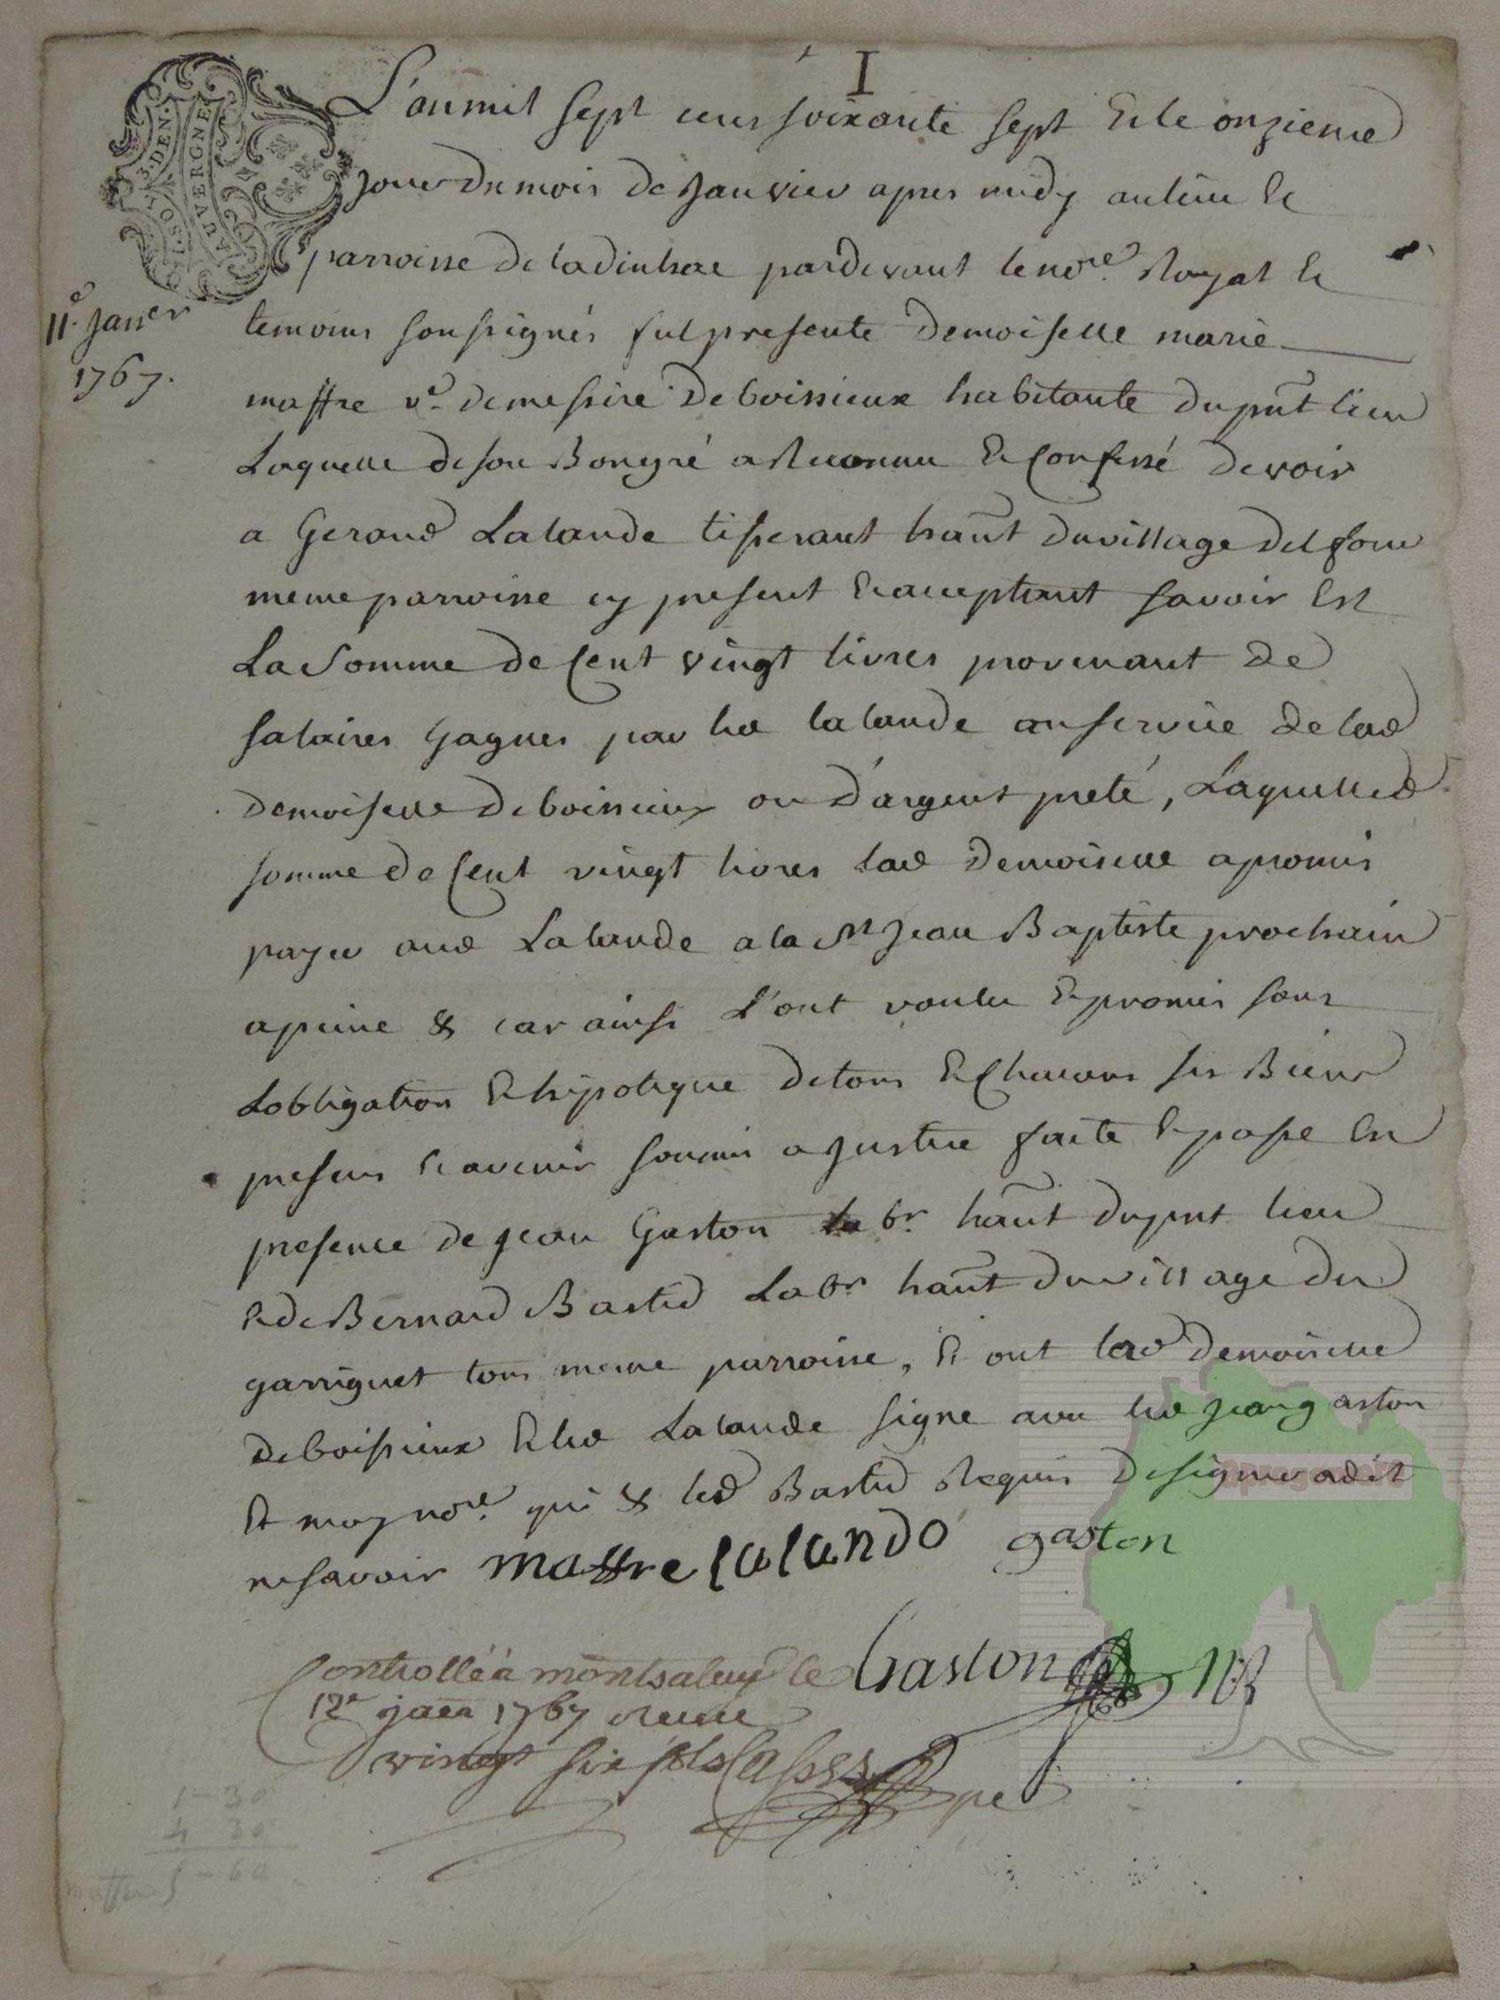 I
L'an mil sept cens soixante sept Et le onzieme
jour du mois de Janvier apres midy au lieu Et
parroisse de ladinhac pardevant le nore. Royal Et
11e. Janer
1767.
temoins soussignés fut presente Demoiselle marie
maffre ve. de messire De boissieux habitante du pnt lieu
Laquelle de son Bon gré a Reconnu Et Confessé devoir
a Geraud Lalande tisserant hant du village del four
meme parroisse cy present Et acceptant savoir Est
La Somme de Cent vingt livres provenant de
salaires gagnes par led lalande au service de lad
demoiselle De boissieux ou d'argent preté, Laquelled
somme de Cent vingt livres lad Demoiselle a promis
payer aud Lalande a la St Jean Baptiste prochain
a peine & car ainsi L'ont voulu Et promis sous
Lobligation Et hipoteque de tous Et Chacuns ses Biens
presens Et avenir soumis a Justice faite Et passé En
presence de jean Gaston labr. hant du pnt lieu
Et de Bernard Bastid Labr hant du village du
garriguet tous meme parroisse, Et ont lad demoiselle
De boissieux Et led Lalande signe avec led jean gaston
Et moy nore. qui & led Bastid Requis de signer a dit
ne savoir maffre lalando gaston
Gaston
Controllé à montsalvy le
12e janer 1767 Recu
vingt six sols
3. DEN.
1. SOL.
AUVERGNE
1 - 30
4 30
5 - 60